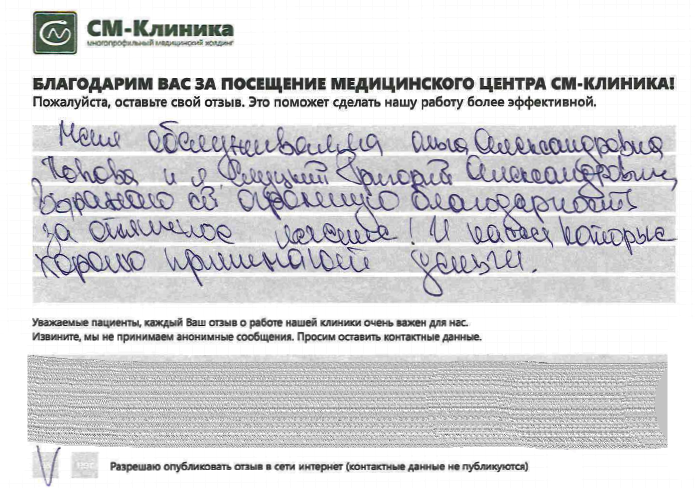 СМ-Клиника
многопрофильный медицинский холдинг
БЛАГОДАРИМ ВАС ЗА ПОСЕЩЕНИЕ МЕДИЦИНСКОГО ЦЕНТРА СМ-КЛИНИКА!
Пожалуйста, оставьте свой отзыв. Это поможет сделать нашу работу более эффективной.
Меня обслуживала Ольга Александровна
Попова и я Слуцкий Григорий Александрович,
выражаю ей огромную благодарность
за отличное лечение! И кассы которые
хорошо принимают деньги.
Уважаемые пациенты, каждый Ваш отзыв о работе нашей клиники очень важен для нас.
Извините, мы не принимаем анонимные сообщения. Просим оставить контактные данные.
Разрешаю опубликовать отзыв в сети интернет (контактные данные не публикуются)